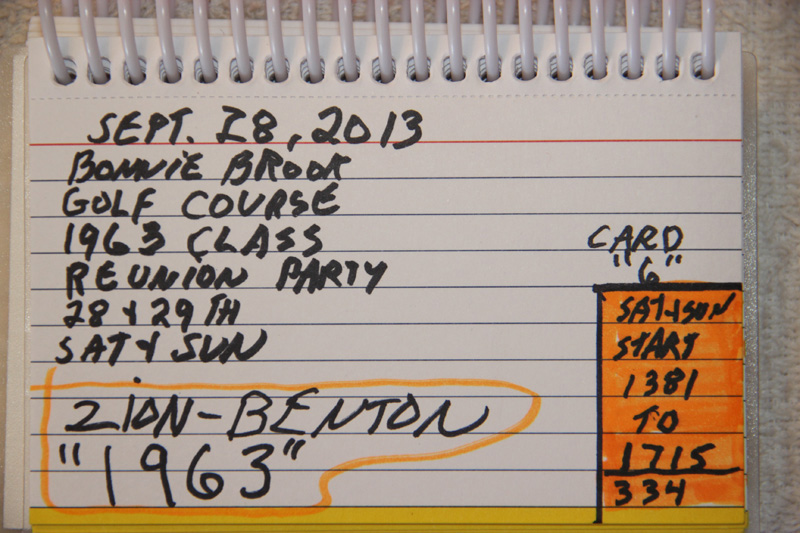 SEPT. 28, 2013
BONNIE BROOK
GOLF COURSE
1963 CLASS
REUNION PARTY
28 & 29TH
SAT & SUN
ZION-BENTON
"1963"
CARD
"6"
SAT & SUN
START
1381
TO
1715
334